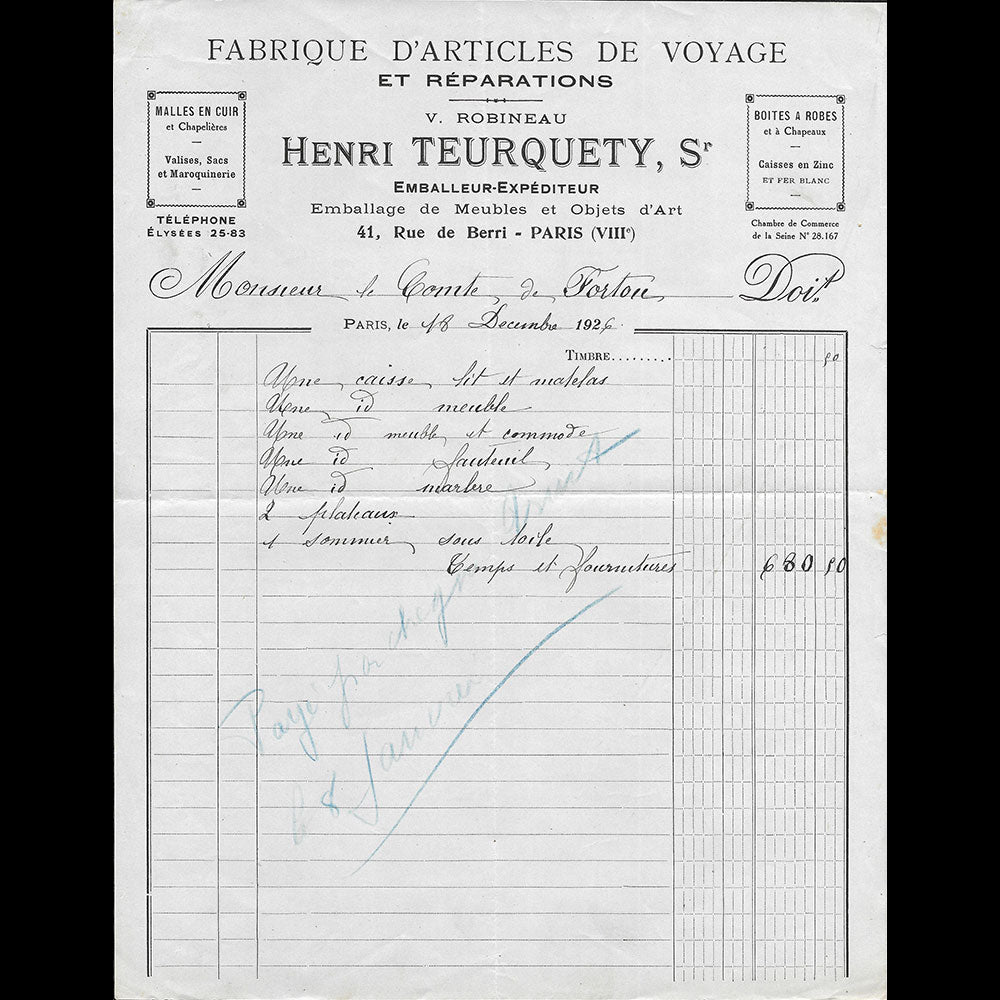 FABRIQUE D'ARTICLES DE VOYAGE
ET RÉPARATIONS
MALLES EN CUIR
et Chapelières
Valises, Sacs
et Maroquinerie
TÉLÉPHONE
ÉLYSÉES 25-83
V. ROBINEAU
HENRI TEURQUETY, Sr
EMBALLEUR-EXPÉDITEUR
Emballage de Meubles et Objets d'Art
41, Rue de Berri - PARIS (VIIIe)
BOITES A ROBES
et à Chapeaux
Caisses en Zinc
ET FER BLANC
Chambre de Commerce
de la Seine N° 28.167
Monsieur le Comte de Fortou Doit
PARIS, le 18 Decembre 1926
TIMBRE......... 50
Une caisse lit et matelas
Une id meuble
Une id meuble et commode
Une id fauteuil
Une id marbre
2 plateaux
1 sommier sous toile
Temps et fournitures 680 50
Payé par cheque
le 8 Janvier